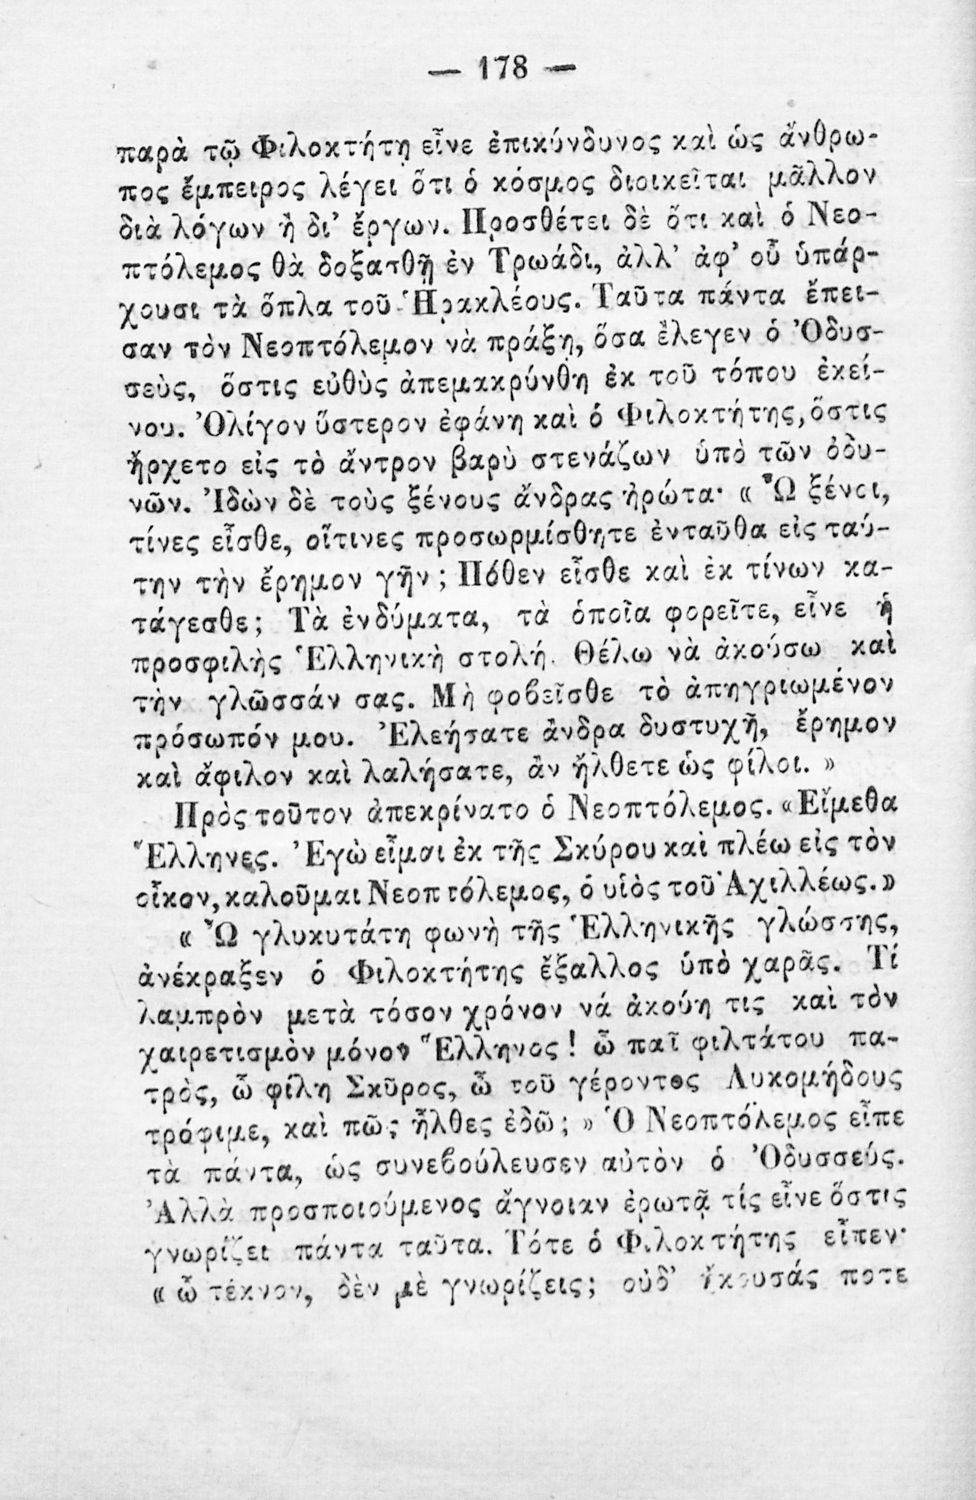 — 178 —
παρὰ τῷ Φιλοκτήτῃ εἶνε ἐπικύνδυνος καὶ ὡς ἄνθρω-
πος ἔμπειρος λέγει ὅτι ὁ κόσμος διοικεῖται μᾶλλον
διὰ λόγων ἢ δι’ ἔργων. Προσθέτει δὲ ὅτι καὶ ὁ Νεο-
πτόλεμος θὰ δοξασθῇ ἐν Τρωάδι, ἀλλ’ ἀφ’ οὗ ὑπάρ-
χουσι τὰ ὅπλα τοῦ Ἡρακλέους. Ταῦτα πάντα ἔπει-
σαν τὸν Νεοπτόλεμον νὰ πράξῃ, ὅσα ἔλεγεν ὁ Ὀδυσ-
σεὺς, ὅστις εὐθὺς ἀπεμακρύνθη ἐκ τοῦ τόπου ἐκεί-
νου. Ὀλίγον ὕστερον ἐφάνη καὶ ὁ Φιλοκτήτης, ὅστις
ἤρχετο εἰς τὸ ἄντρον βαρὺ στενάζων ὑπὸ τῶν ὀδυ-
νῶν. Ἰδὼν δὲ τοὺς ξένους ἄνδρας ἠρώτα· « Ὦ ξένοι,
τίνες εἶσθε, οἵτινες προσωρμίσθητε ἐνταῦθα εἰς ταύ-
την τὴν ἔρημον γῆν ; Πόθεν εἶσθε καὶ ἐκ τίνων κα-
τάγεσθε; Τὰ ἐνδύματα, τὰ ὁποῖα φορεῖτε, εἶνε ἡ
προσφιλὴς Ἑλληνικὴ στολή. Θέλω νὰ ἀκούσω καὶ
τὴν γλῶσσάν σας. Μὴ φοβεῖσθε τὸ ἀπηγριωμένον
πρόσωπόν μου. Ἐλεήσατε ἄνδρα δυστυχῆ, ἔρημον
καὶ ἄφιλον καὶ λαλήσατε, ἂν ἤλθετε ὡς φίλοι. »
Πρὸς τοῦτον ἀπεκρίνατο ὁ Νεοπτόλεμος. «Εἴμεθα
Ἕλληνες. Ἐγὼ εἶμαι ἐκ τῆς Σκύρου καὶ πλέω εἰς τὸν
οἶκον, καλοῦμαι Νεοπτόλεμος, ὁ υἱὸς τοῦ Ἀχιλλέως.»
« Ὦ γλυκυτάτη φωνὴ τῆς Ἑλληνικῆς γλώσσης,
ἀνέκραξεν ὁ Φιλοκτήτης ἔξαλλος ὑπὸ χαρᾶς. Τί
λαμπρὸν μετὰ τόσον χρόνον νά ἀκούῃ τις καὶ τὸν
χαιρετισμὸν μόνον Ἕλληνος ! ὦ παῖ φιλτάτου πα-
τρὸς, ὦ φίλη Σκῦρος, ὦ τοῦ γέροντος Λυκομήδους
τρόφιμε, καὶ πῶς ἦλθες ἐδῶ; » Ὁ Νεοπτόλεμος εἶπε
τὰ πάντα, ὡς συνεβούλευσεν αὐτὸν ὁ Ὀδυσσεύς.
Ἀλλὰ προσποιούμενος ἄγνοιαν ἐρωτᾷ τίς εἶνε ὅστις
γνωρίζει πάντα ταῦτα. Τότε ὁ Φιλοκτήτης εἶπεν·
« ὦ τέκνον, δὲν μὲ γνωρίζεις; οὐδ’ ἤκουσάς ποτε